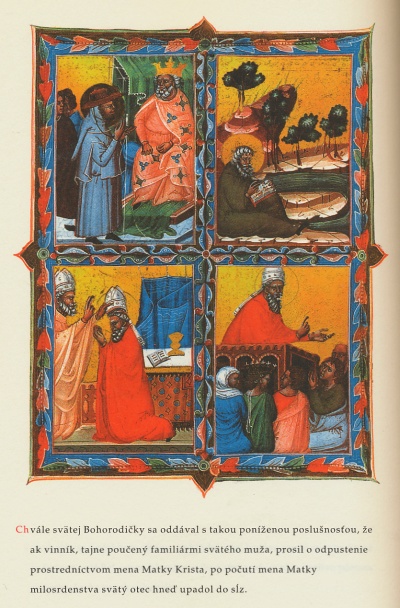 Chvále svätej Bohorodičky sa oddával s takou poníženou poslušnosťou, že
ak vinník, tajne poučený familiármi svätého muža, prosil o odpustenie
prostredníctvom mena Matky Krista, po počutí mena Matky
milosrdenstva svätý otec hneď upadol do sĺz.